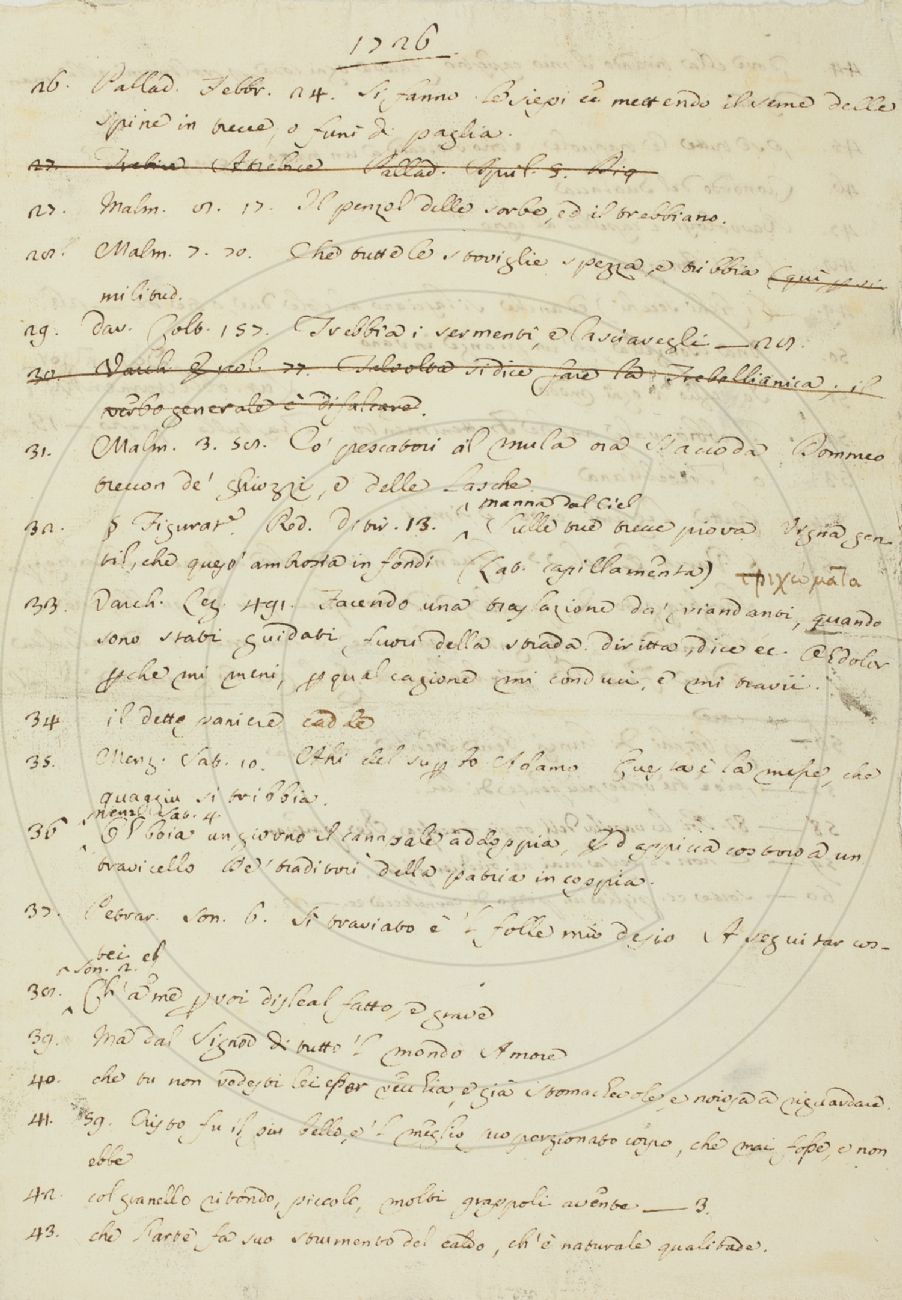 1726
26. Pallad. Febbr. 24. Si fanno le siepi ec mettendo il seme delle
spine in trecce, o funi di paglia.
27. Trebice Atrebice Pallad. April. 3. Big
27. Malm. 9. 17. Il penzol delle sorbe, ed il trebbiano.
28. Malm. 7. 70. Che tutte le stoviglie spezza, e tribbia (qui, per si
militud.
29. Dav. Colt. 157. Trebbia i sermenti, e lasciavegli — 28.
30. Varch. Ercol. 77. Talvolta si dice fare la Trebellianica, il
verbo generale è difalcare.
31. Malm. 3. 58. Co' pescatori al mula ora s'accoda Dommeo
treccon de' ghiozzi, e delle lasche
manna dal Ciel
32. § Figurat.e Red. Ditir. 13. Sulle tue trecce piova Vigna gen-
til, che quest' ambrosia infondi (Lat. capillamenta) τριχώματα
33. Varch. Lez. 491. Facendo una traslazione da' viandanti, quando
sono stati guidati fuori della strada diritta, dice ec. Edolor
perche mi meni, per qual cagione mi conduci, e mi travii.
34 il detto paniere cadde
35. Menz. Sat. 10. Ahi del supp.to Adamo Questa è la messe, che
quaggiu si tribbia.
Menz. Sat. 4.
36 O l' boia un giorno il canapale addoppia, Ed appicca costoro a un
travicello Com'e' traditori della patria in coppia.
37. Petrar. Son. 6. Si traviato è 'l folle mio desio A seguitar cos-
tei el
Son. 2.
38. Ch'a me per voi disleal fatto, e grave
39. Ma dal Signor di tutto 'l mondo Amore
40. che tu non vedesti lei esser vecchia, e già stomachevole, e noiosa a riguardare.
41. 39. Cristo fu il piu bello, e 'l meglio proporzionato corpo, che mai fosse, e non
ebbe
42. col granello ritondo, piccole, molti grappoli avente — 3.
43. che l'arte fa suo strumento del caldo, ch'è naturale qualitade.